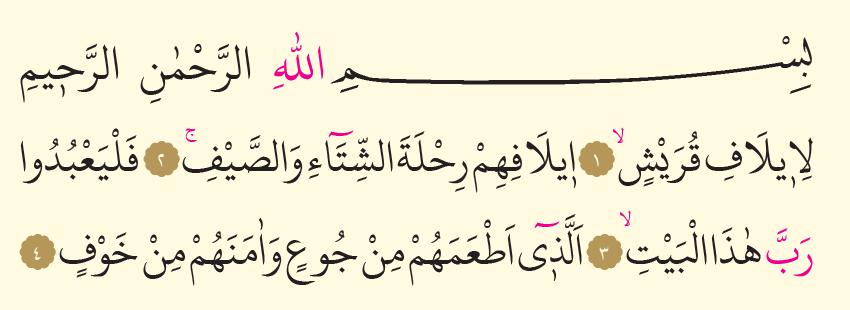 بِسْمِ اللّٰهِ الرَّحْمٰنِ الرَّح۪يمِ
لِا۪يلَافِ قُرَيْشٍۙ ﴿١﴾ ا۪يلَافِهِمْ رِحْلَةَ الشِّتَٓاءِ وَالصَّيْفِۚ ﴿٢﴾ فَلْيَعْبُدُوا
رَبَّ هٰذَا الْبَيْتِۙ ﴿٣﴾ اَلَّذ۪ٓي اَطْعَمَهُمْ مِنْ جُوعٍ وَاٰمَنَهُمْ مِنْ خَوْفٍ ﴿٤﴾